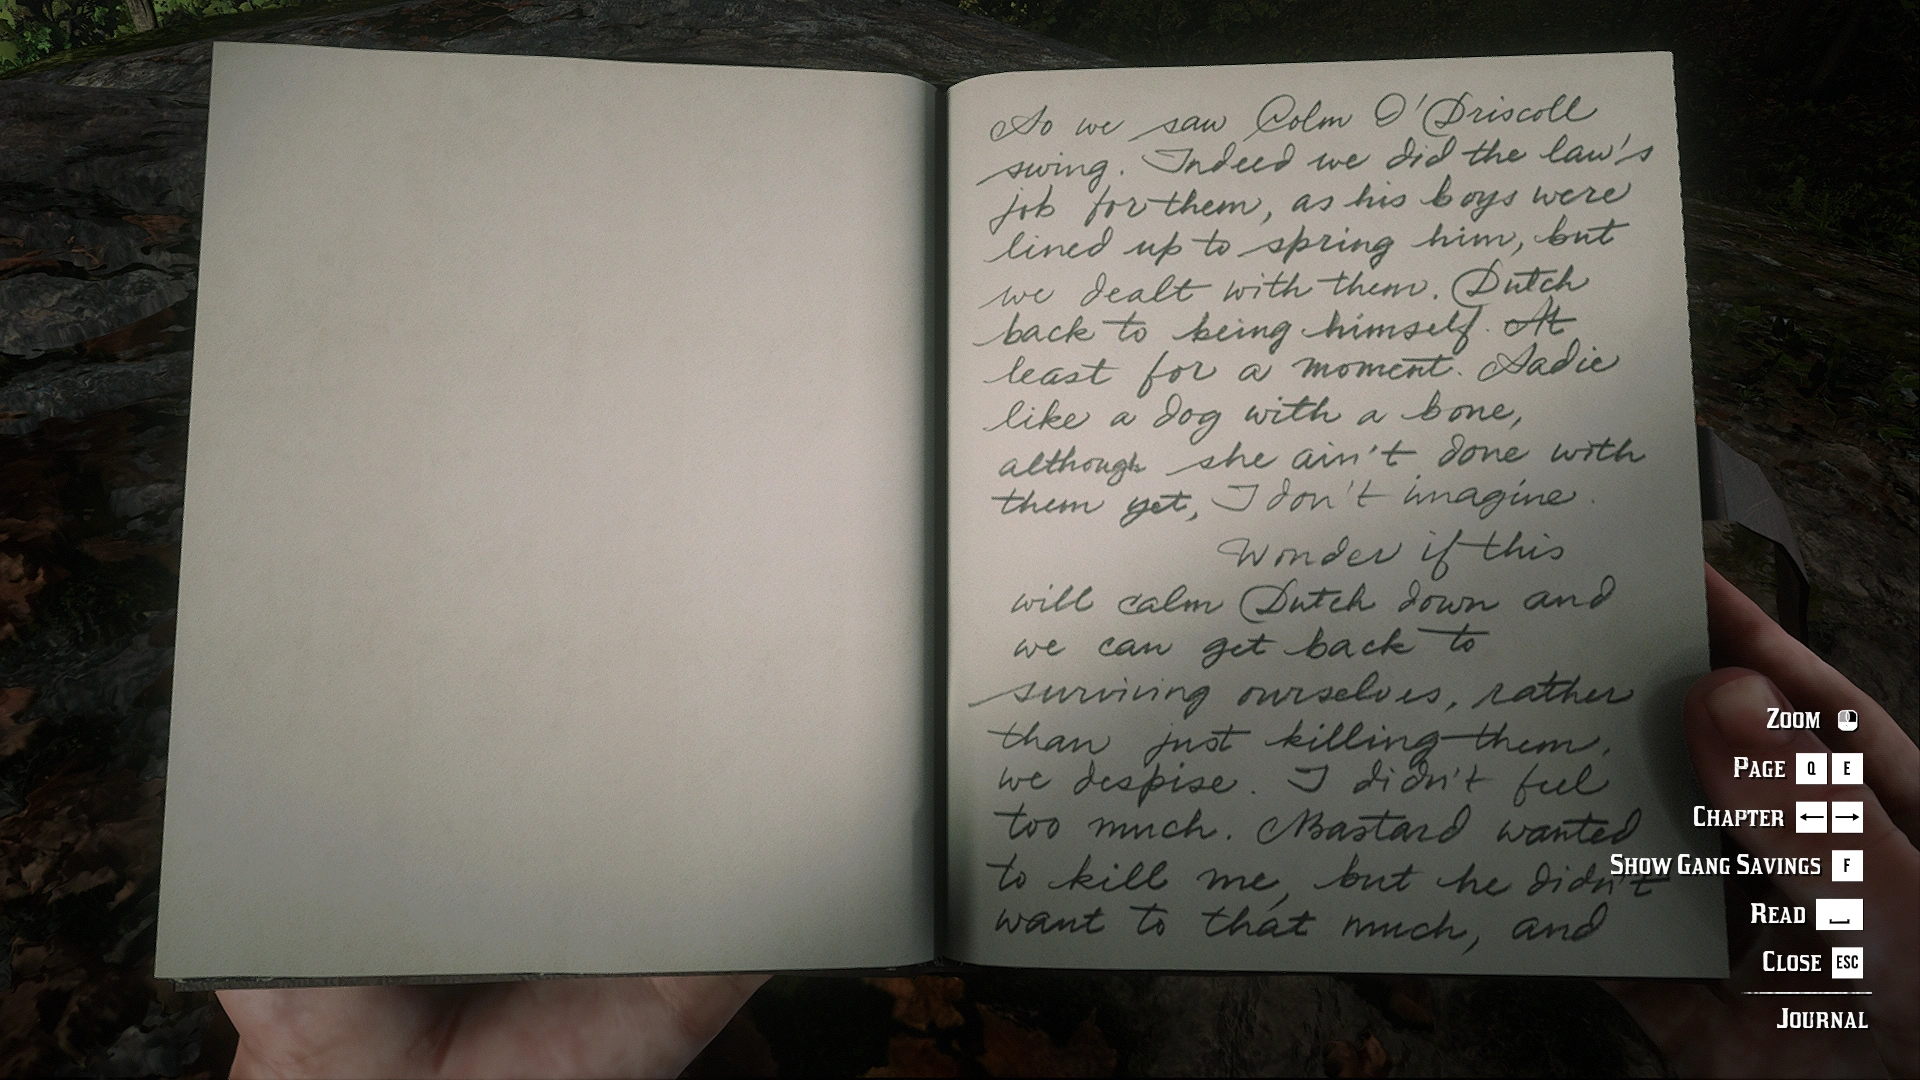 So we saw Colm O'Driscoll
swing. Indeed we did the law's
job for them, as his boys were
lined up to spring him, but
we dealt with them. Dutch
back to being himself. At
least for a moment. Sadie
like a dog with a bone,
although she ain't done with
them yet, I don't imagine.
Wonder if this
will calm Dutch down and
we can get back to
surviving ourselves, rather
than just killing them,
we despise. I didn't feel
too much. Bastard wanted
to kill me, but he didn't
want to that much, and
ZOOM
PAGE Q E
CHAPTER ← →
SHOW GANG SAVINGS F
READ
CLOSE ESC
JOURNAL